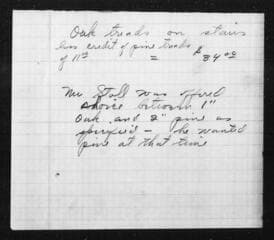 Oak treads on stairs
less credit of pine treads
of 11⁰⁰ = $34⁰⁰
Mr Stoll was offered
choice between 1"
Oak and 2" pine as
specified - he wanted
pine at that time